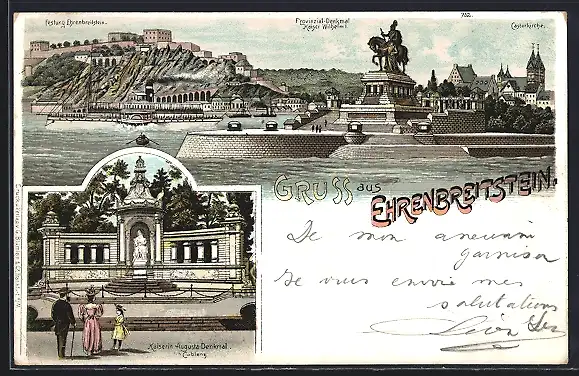 Festung Ehrenbreitstein.
Provinzial-Denkmal
Kaiser Wilhelm I.
702.
Castorkirche.
GRUSS aus
EHRENBREITSTEIN.
De mon ancienne
garnison
je vous envoie mes
salutations
Léon
Kaiserin Augusta-Denkmal.
Coblenz